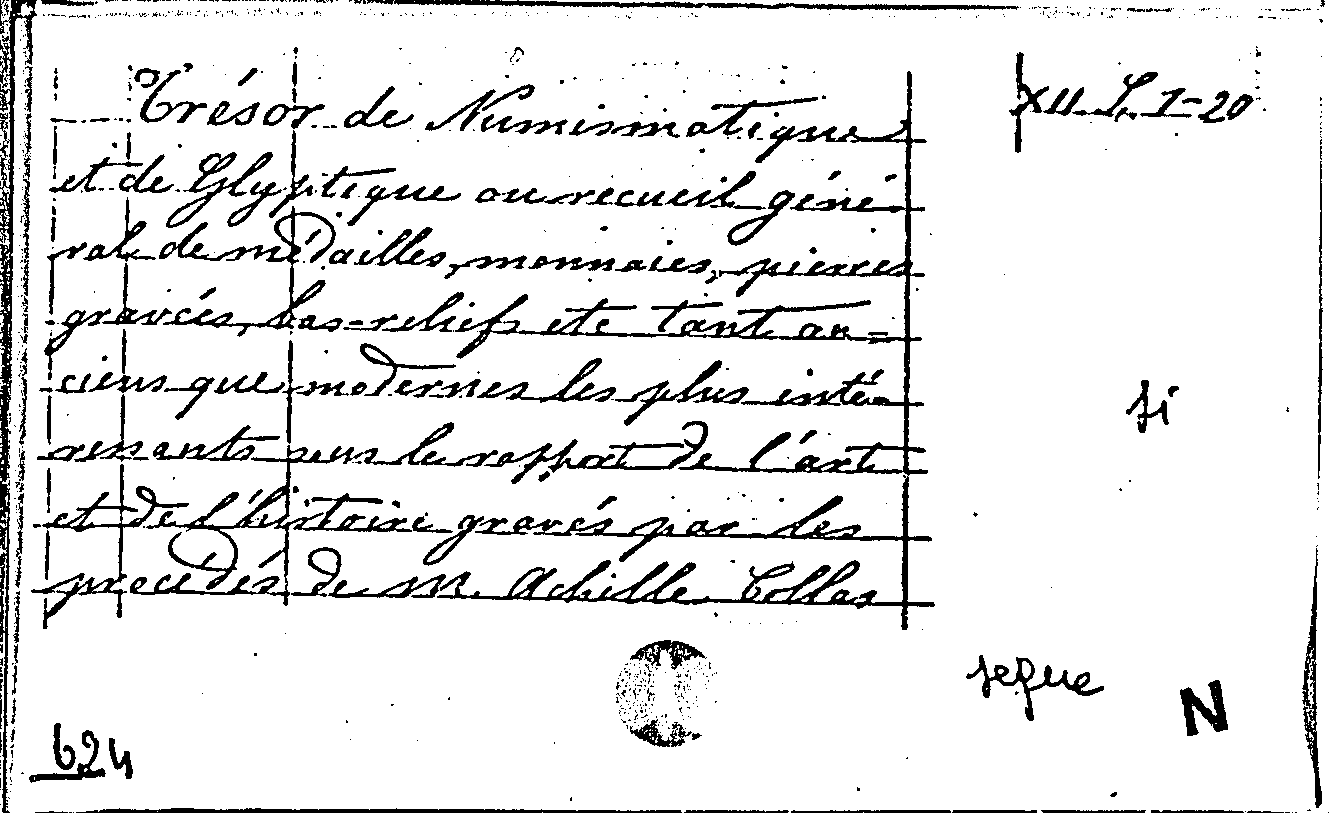 Trésor de Numismatique
et de Glyptique ou recueil géné-
ral de médailles, monnaies, pierres
gravées, bas-reliefs etc tant an=
ciens que modernes les plus inté-
ressants sous le rapport de l'art
et de l'histoire gravés par les
procédés de M. Achille Collas
XII. L. 1-20
si
segue
N
624